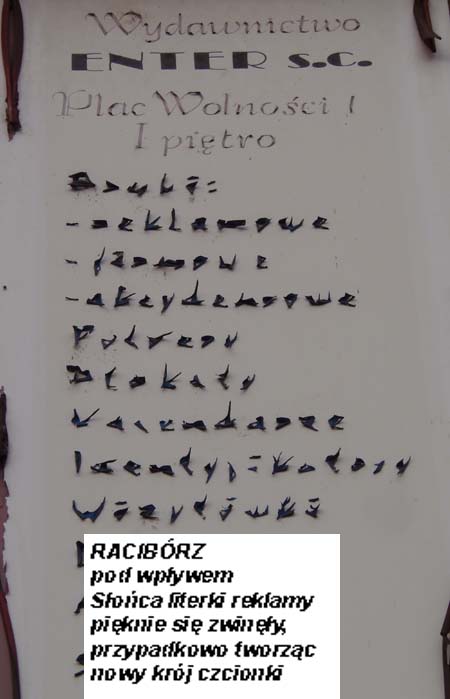 Wydawnictwo
ENTER s.c.
Plac Wolności 1
I piętro
Druki:
- reklamowe
- firmowe
- akcydensowe
Plakaty
Kalendarze
Identyfikatory
Wizytówki
RACIBÓRZ
pod wpływem
Słońca literki reklamy
pięknie się zwinęły,
przypadkowo tworząc
nowy krój czcionki